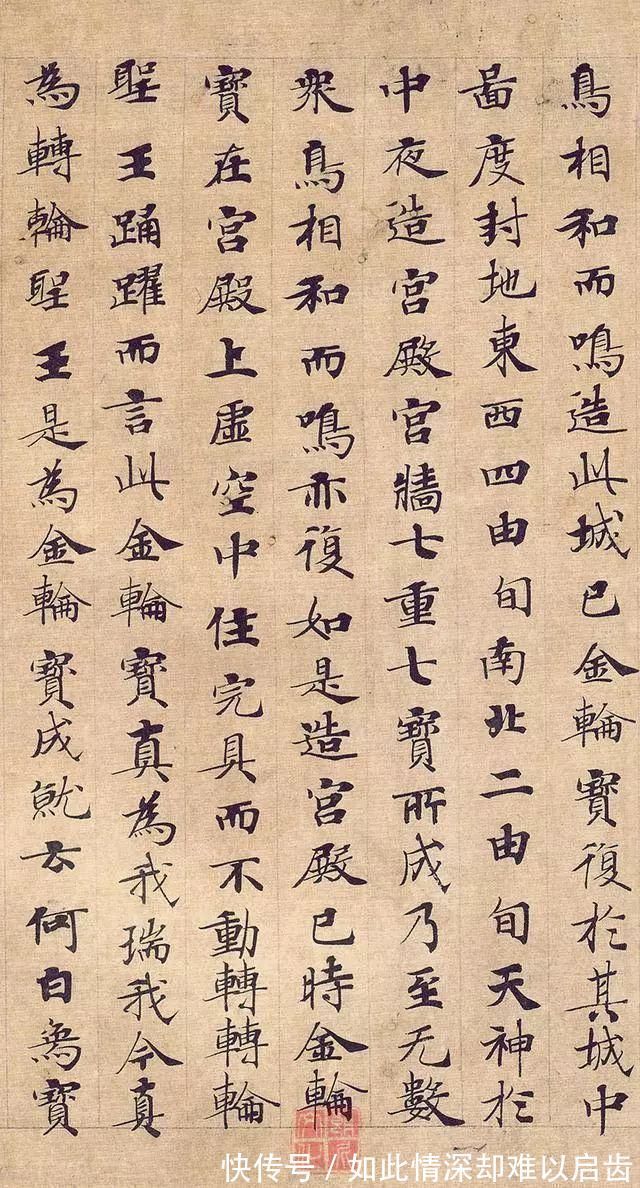 鳥相和而鳴造此城已金輪寶復於其城中
啚度封地東西四由旬南北二由旬天神於
中夜造宮殿宮牆七重七寶所成乃至无數
衆鳥相和而鳴亦復如是造宮殿已時金輪
寶在宮殿上虛空中住完具而不動轉轉輪
聖王踊躍而言此金輪寶真為我瑞我今真
為轉輪聖王是為金輪寶成就云何白象寶
快传号 / 如此情深却难以启齿